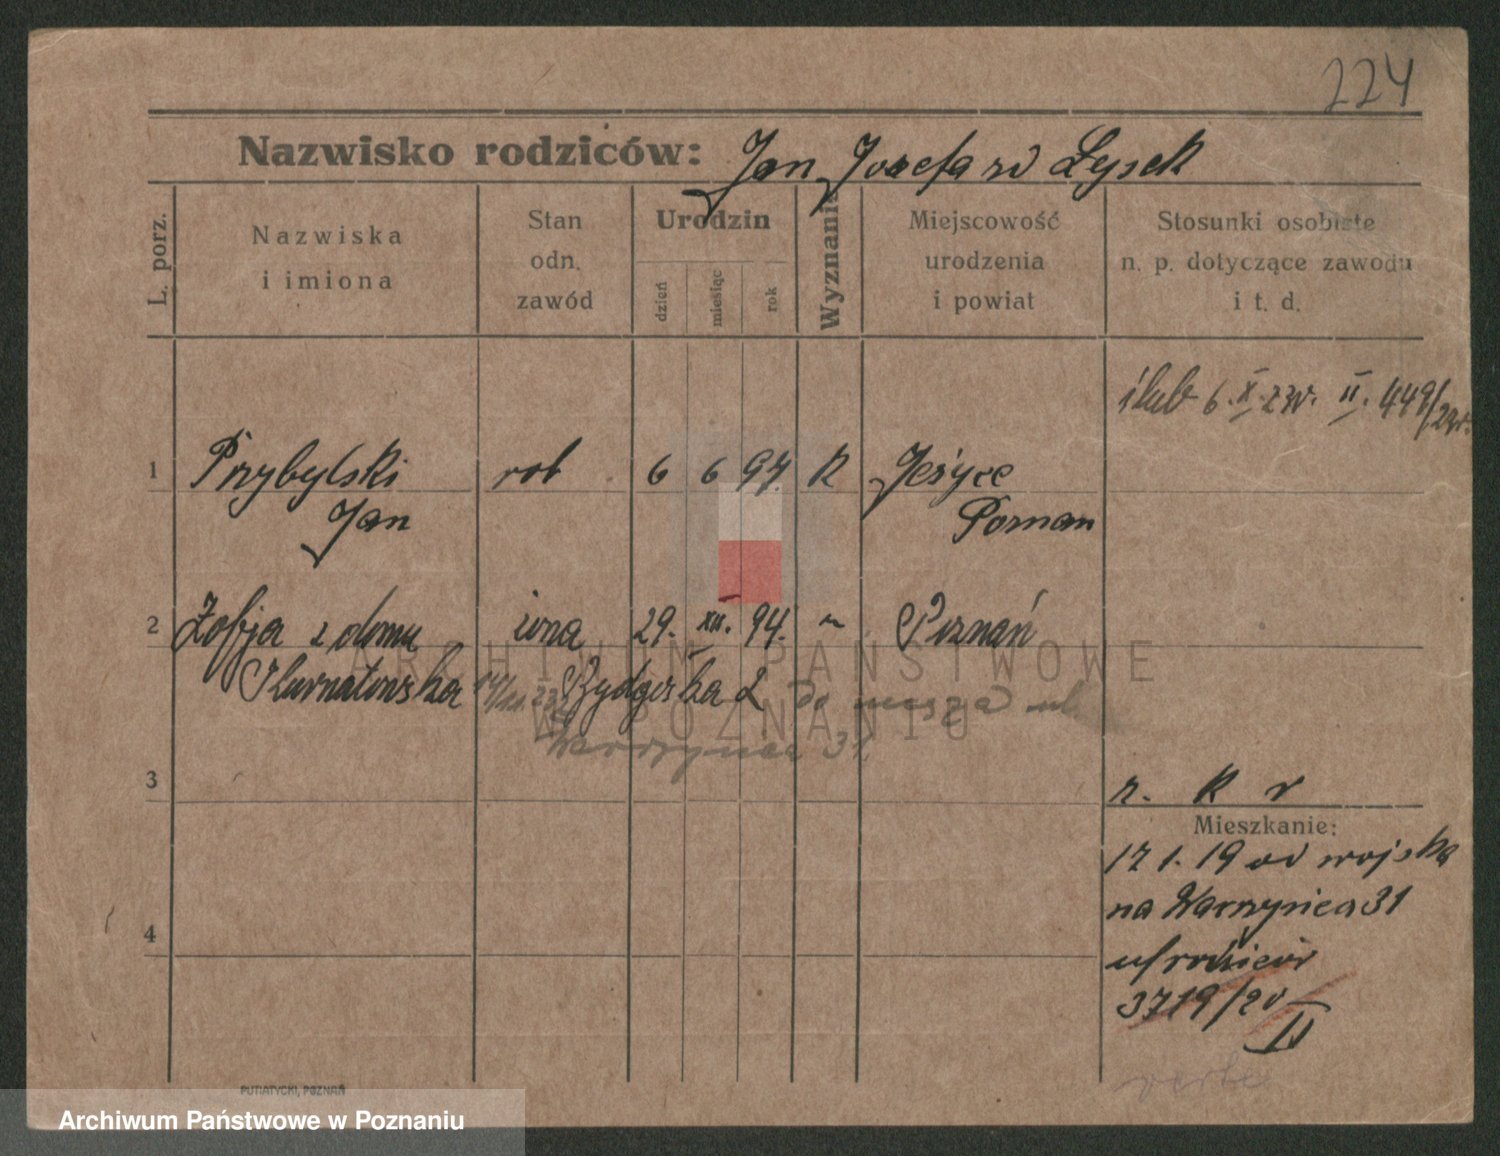 224
Nazwisko rodziców: Jan Józefa zd Łysek
L. porz.
Nazwiska
i imiona
Stan
odn.
zawód
Urodzin
dzień
miesiąc
rok
Wyznanie
Miejscowość
urodzenia
i powiat
Stosunki osobiste
n. p. dotyczące zawodu
i t. d.
ślub 6. X. 23r. II. 449/23r.
1 Przybylski rob 6 6 97. K Jeżyce
Jan Poznan
2 Zofja z domu żona 29. XII. 94. " Poznań
14/11.23 Bydgoska 2 do męża ul.
Wawrzynca 31.
3
r. k r
Mieszkanie:
17 1. 19 od wojska
na Wawrzynca 31
u rodziców
3719/20
IV
verte
4
PUTIATYCKI, POZNAŃ
ARCHIWUM PAŃSTWOWE
W POZNANIU
Archiwum Państwowe w Poznaniu